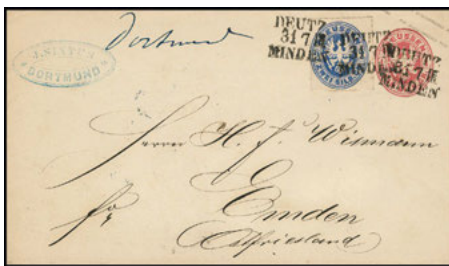 Dortmund
J. SIXTUS
DORTMUND
DEUTZ
31 7 III
MINDEN
DEUTZ
31 7 III
MINDEN
DEUTZ
31 7 III
MINDEN
PREUSSEN
Herrn H. J. Wismann
Emden
Ostfriesland